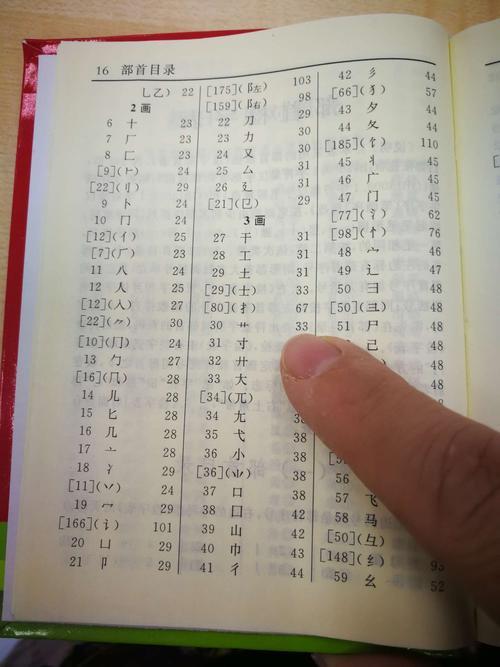 16 部首目录
乚乙) 22
2画
6 十 23
7 厂 23
8 匚 23
[9](⺊) 24
[22](刂) 29
9 卜 24
10 冂 24
[12](亻) 25
[7](厂) 23
11 八 24
12 人 25
[12](入) 27
[22](⺈) 30
[10](⺆) 24
13 勹 27
[16](⺇) 28
14 儿 28
15 匕 28
16 几 28
17 亠 28
18 冫 29
[11](丷) 24
19 冖 29
[166](讠) 101
20 凵 29
21 卩 29
[175](阝左) 103
[159](阝右) 98
22 刀 30
23 力 30
24 又 30
25 厶 30
26 廴 29
[21](㔾) 29
3画
27 干 31
28 工 31
29 土 31
[29](士) 33
[80](扌) 67
30 艹 33
31 寸
32 廾
33 大
[34](兀)
34 尢 38
35 弋 38
36 小 38
[36](⺌) 38
37 口 38
38 囗 42
39 山 42
40 巾 43
41 彳 44
42 彡 44
[66](犭) 57
43 夕 44
44 夂 44
[185](饣) 110
45 丬 45
46 广 45
47 门 45
[77](氵) 62
[98](忄) 76
48 宀 46
49 辶 47
50 彐 48
[50](彑) 48
51 尸 48
己 48
48
48
48
56
57 飞
58 马
[50](彑)
[148](纟) 93
59 幺 52